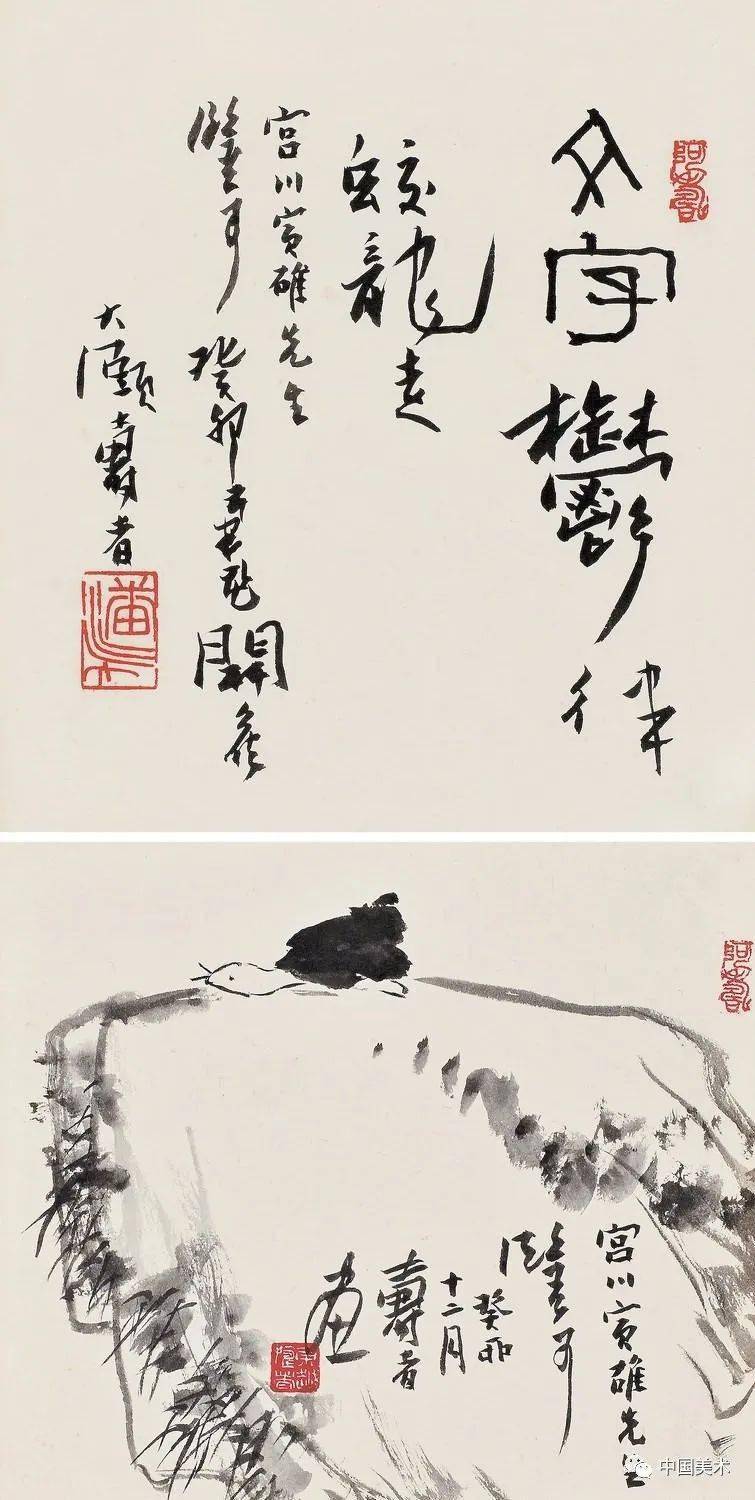 阿壽
文字鬱律
蛟龍走
宮川寅雄先生
鑒可 癸卯 開
大頤壽者
阿壽
宮川寅雄先生
鑒可
癸卯
十二月
壽者
畫
中国美术